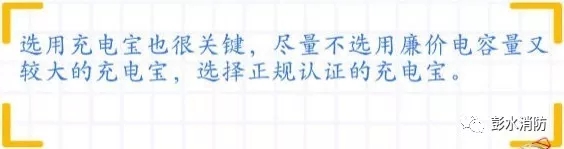 选用充电宝也很关键，尽量不选用廉价电容量又
较大的充电宝，选择正规认证的充电宝。
彭水消防